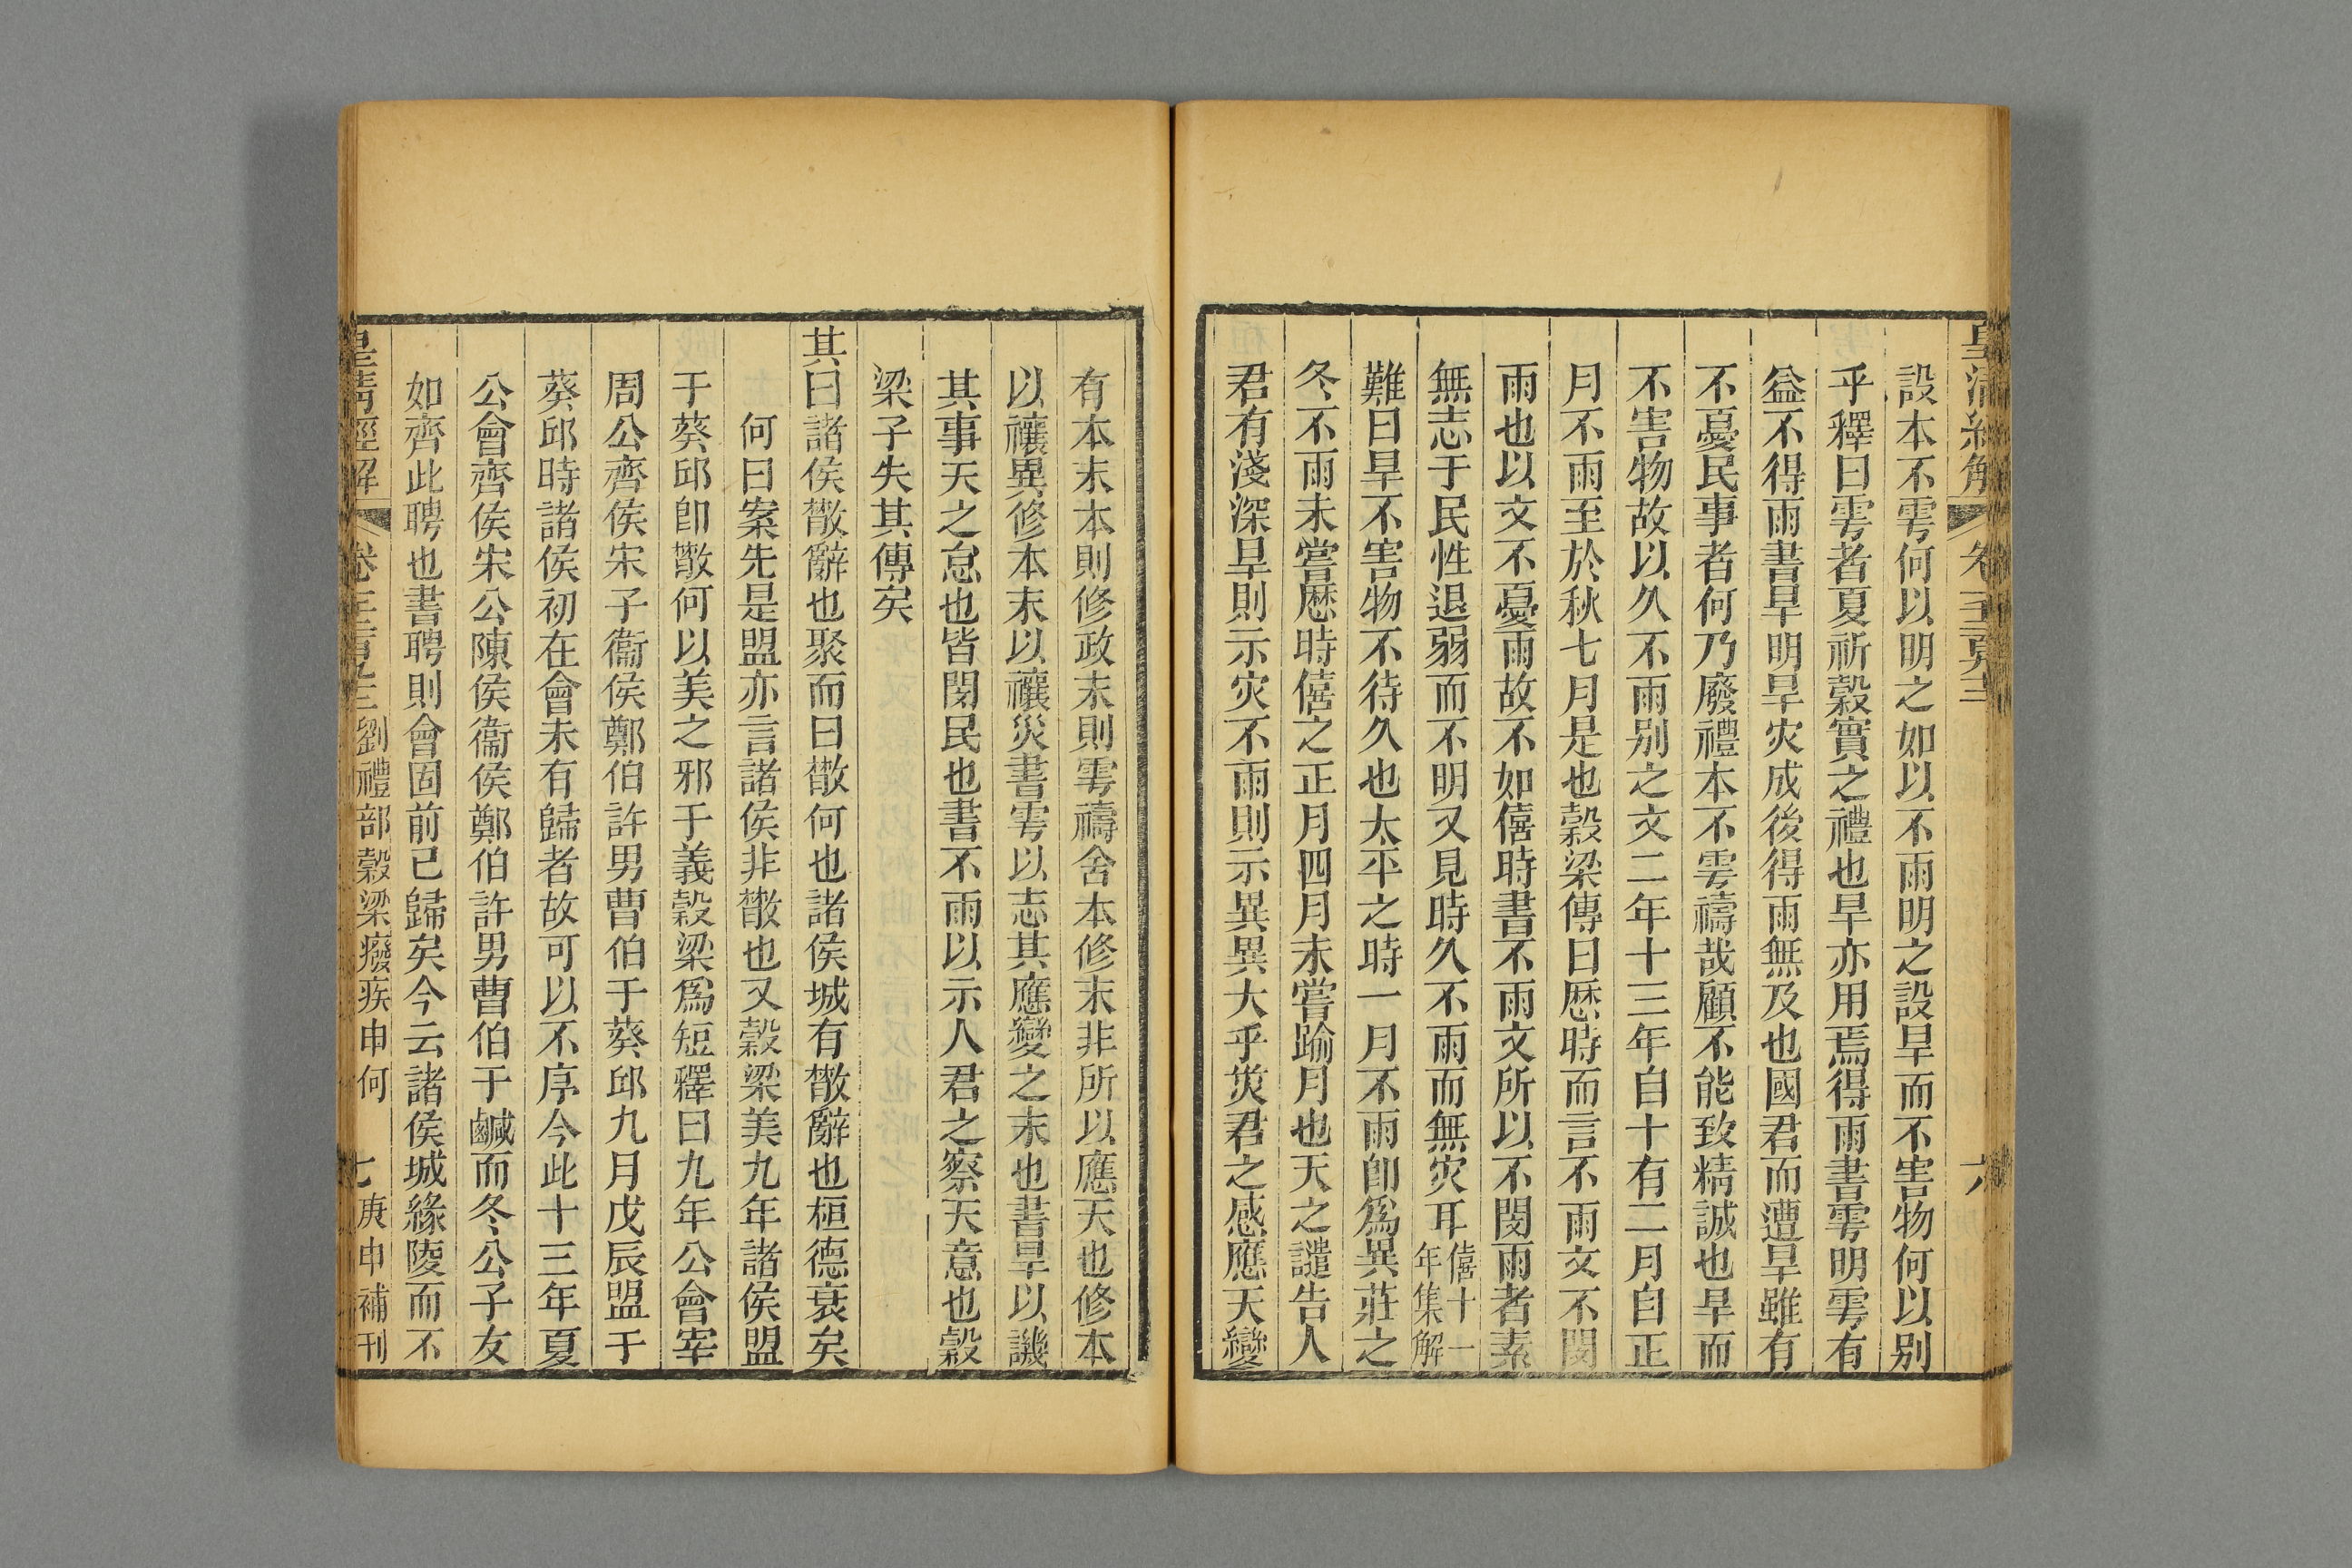 皇清經解 卷一千二百九十三 六
設本不雩何以明之如以不雨明之設旱而不害物何以别
乎釋曰雩者夏祈穀實之禮也旱亦用焉得雨書雩明雩有
益不得雨書旱明旱灾成後得雨無及也國君而遭旱雖有
不憂民事者何乃廢禮本不雩禱哉顧不能致精誠也旱而
不害物故以久不雨别之文二年十三年自十有二月自正
月不雨至於秋七月是也穀梁傳曰歴時而言不雨文不閔
雨也以文不憂雨故不如僖時書不雨文所以不閔雨者素
無志于民性退弱而不明又見時久不雨而無灾耳僖十一年集解
難曰旱不害物不待久也太平之時一月不雨卽爲異莊之
冬不雨未嘗歴時僖之正月四月未嘗踰月也天之譴告人
君有淺深旱則示灾不雨則示異異大乎災君之感應天變
有本末本則修政末則雩禱舍本修末非所以應天也修本
以禳異修本末以禳災書雩以志其應變之末也書旱以譏
其事天之怠也皆閔民也書不雨以示人君之察天意也穀
梁子失其傳矣
其曰諸侯㪚辭也聚而曰㪚何也諸侯城有㪚辭也桓德衰矣
何曰案先是盟亦言諸侯非㪚也又穀梁美九年諸侯盟
于葵邱卽㪚何以美之邪于義穀梁爲短釋曰九年公會宰
周公齊侯宋子衞侯鄭伯許男曹伯于葵邱九月戊辰盟于
葵邱時諸侯初在會未有歸者故可以不序今此十三年夏
公會齊侯宋公陳侯衞侯鄭伯許男曹伯于鹹而冬公子友
如齊此聘也書聘則會固前已歸矣今云諸侯城緣陵而不
皇清經解 卷一千二百九十三 劉禮部穀梁癈疾申何 七 庚申補刊